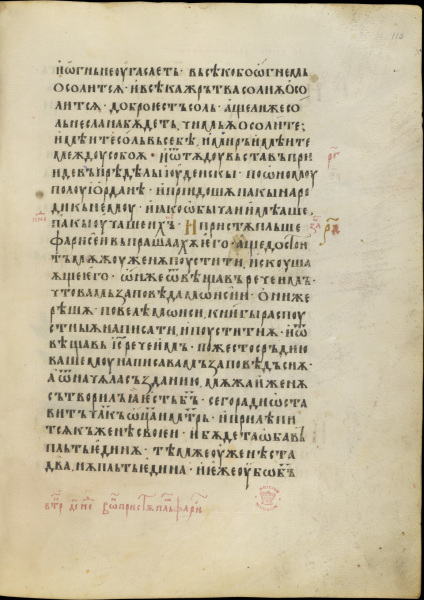 и҆ѡ҆гньнеоугаслеть· вьсѣкобоѡ҆гнемь
ѡсолитсѧ· ивсѣкажрътвасолиѫѡ҆со
литсѧ· добројестьсоль· ащелижесо
льнесланабѫдеть, чимьѫѡсолите;
имѣитесольвьсебѣ, имиръимѣите
междоусобоѫ· иѡ҆тѫдоувьставъпри
идевъпрѣдѣлыіоуденскы· поѡномоу
полоуіѡрдане· иприидошѫпакынаро
дикьнемоу· иꙗкоѡбычаиимѣаше,
пакыоучашеихъ· Ипристѫпльше
фарисеивъпрашаахѫего· ащедостои
тьмѫжоуженѫпоустити, искоуша
ѫщеиего· ѡнжеѡ҆вѣщавъречеимъ·
чтовамьзаповѣдамѡиси· ѡниже
рѣшѫ· повелѣмѡиси, книгыраспоу
стныѫнаписати, ипоуститиѫ· иѡ҆
вѣщавь іс҃речеимъ· пожестосръдию
вашемоунаписавамъзаповѣдьсиѫ·
аѡ҆началасъзданию, мѫжаиженѫ
сътворилъꙗестьб҃ъ· сегорадиѡста
витьчл҃къѡ҆цаимт҃рь· иприлѣпи
тсѧкьженѣсвоеи· ибѫдетаѡбавь
пльтьединѫ· тѣмжеоуженѣста
два, нѫпльтьедина· иежеоубѡб҃ъ